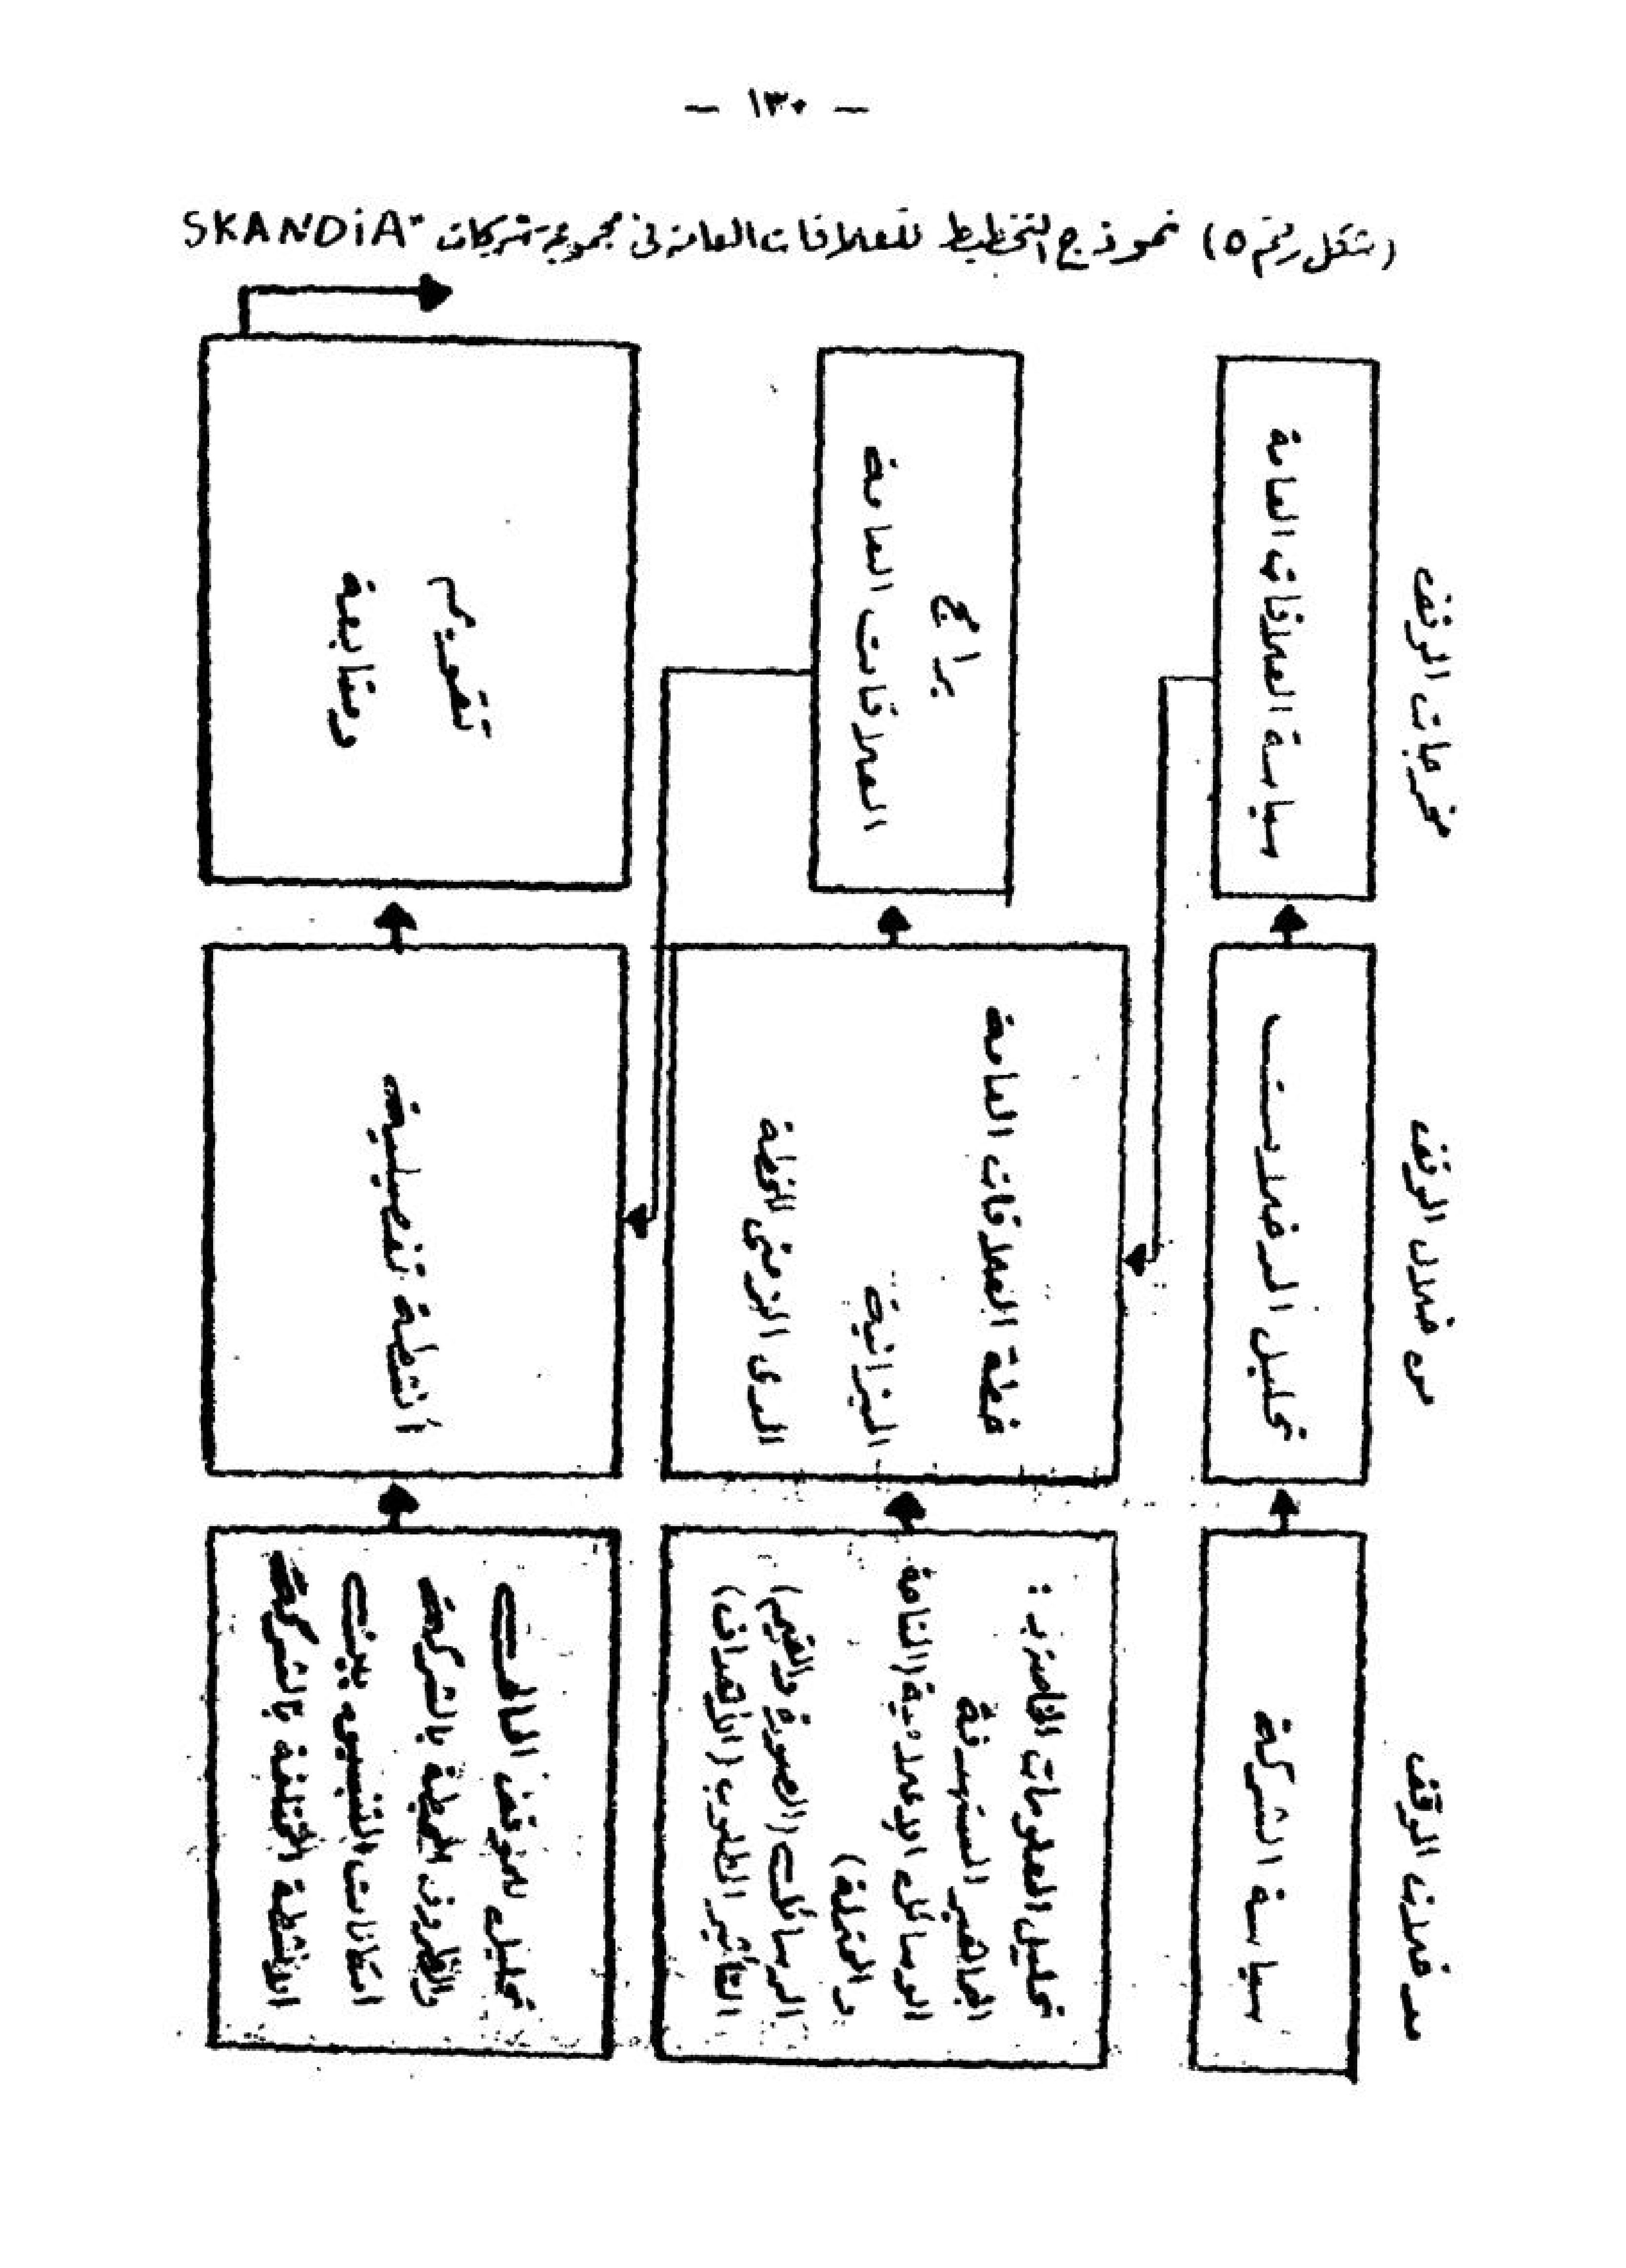 - ١٣٠ -
(شكل رقم ٥) نموذج التخطيط للعلاقات العامة فى مجموعة شركات "SKANDiA
مدخلات الموقف
من خلال الموقف
مخرجات الموقف
سياسة الشركة
تحليل المدخلات
سياسة العلاقات العامة
تحليل المعلومات الخاصة بـ :
الجماهير المستهدفة
الوسائل الاعلامية (المتاحة
والممتلكة)
الرسائل (الصورة والقيم)
التأثير المطلوب (الأهداف)
خطة العلاقات العامة
الميزانية
المدى الزمنى للخطة
برامج
العلاقات العامة
تحليل للموقف الحالى
والظروف المحيطة بالشركة
امكانات التنسيق بين
الانشطة المختلفة بالشركة
أنشطة تفصيلية
تقويم
ومتابعة